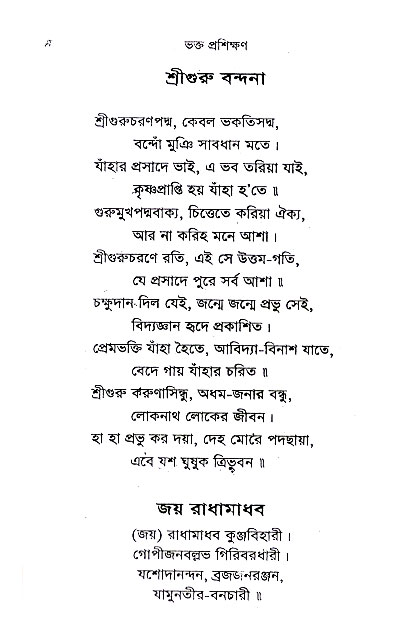 ভক্ত প্রশিক্ষণ
শ্রীগুরু বন্দনা
শ্রীগুরুচরণপদ্ম, কেবল ভকতিসদ্ম,
বন্দোঁ মুঞি সাবধান মতে ।
যাঁহার প্রসাদে ভাই, এ ভব তরিয়া যাই,
কৃষ্ণপ্রাপ্তি হয় যাঁহা হ'তে ॥
গুরুমুখপদ্মবাক্য, চিত্তেতে করিয়া ঐক্য,
আর না করিহ মনে আশা ।
শ্রীগুরুচরণে রতি, এই সে উত্তম-গতি,
যে প্রসাদে পুরে সর্ব আশা ॥
চক্ষুদান-দিল যেই, জন্মে জন্মে প্রভু সেই,
বিদ্যজ্ঞান হৃদে প্রকাশিত ।
প্রেমভক্তি যাঁহা হৈতে, আবিদ্যা-বিনাশ যাতে,
বেদে গায় যাঁহার চরিত ॥
শ্রীগুরু করুণাসিন্ধু, অধম-জনার বন্ধু,
লোকনাথ লোকের জীবন ।
হা হা প্রভু কর দয়া, দেহ মোরে পদছায়া,
এবে যশ ঘুষুক ত্রিভুবন ॥
জয় রাধামাধব
(জয়) রাধামাধব কুঞ্জবিহারী ।
গোপীজনবল্লভ গিরিবরধারী ।
যশোদানন্দন, ব্রজজনরঞ্জন,
যামুনতীর-বনচারী ॥